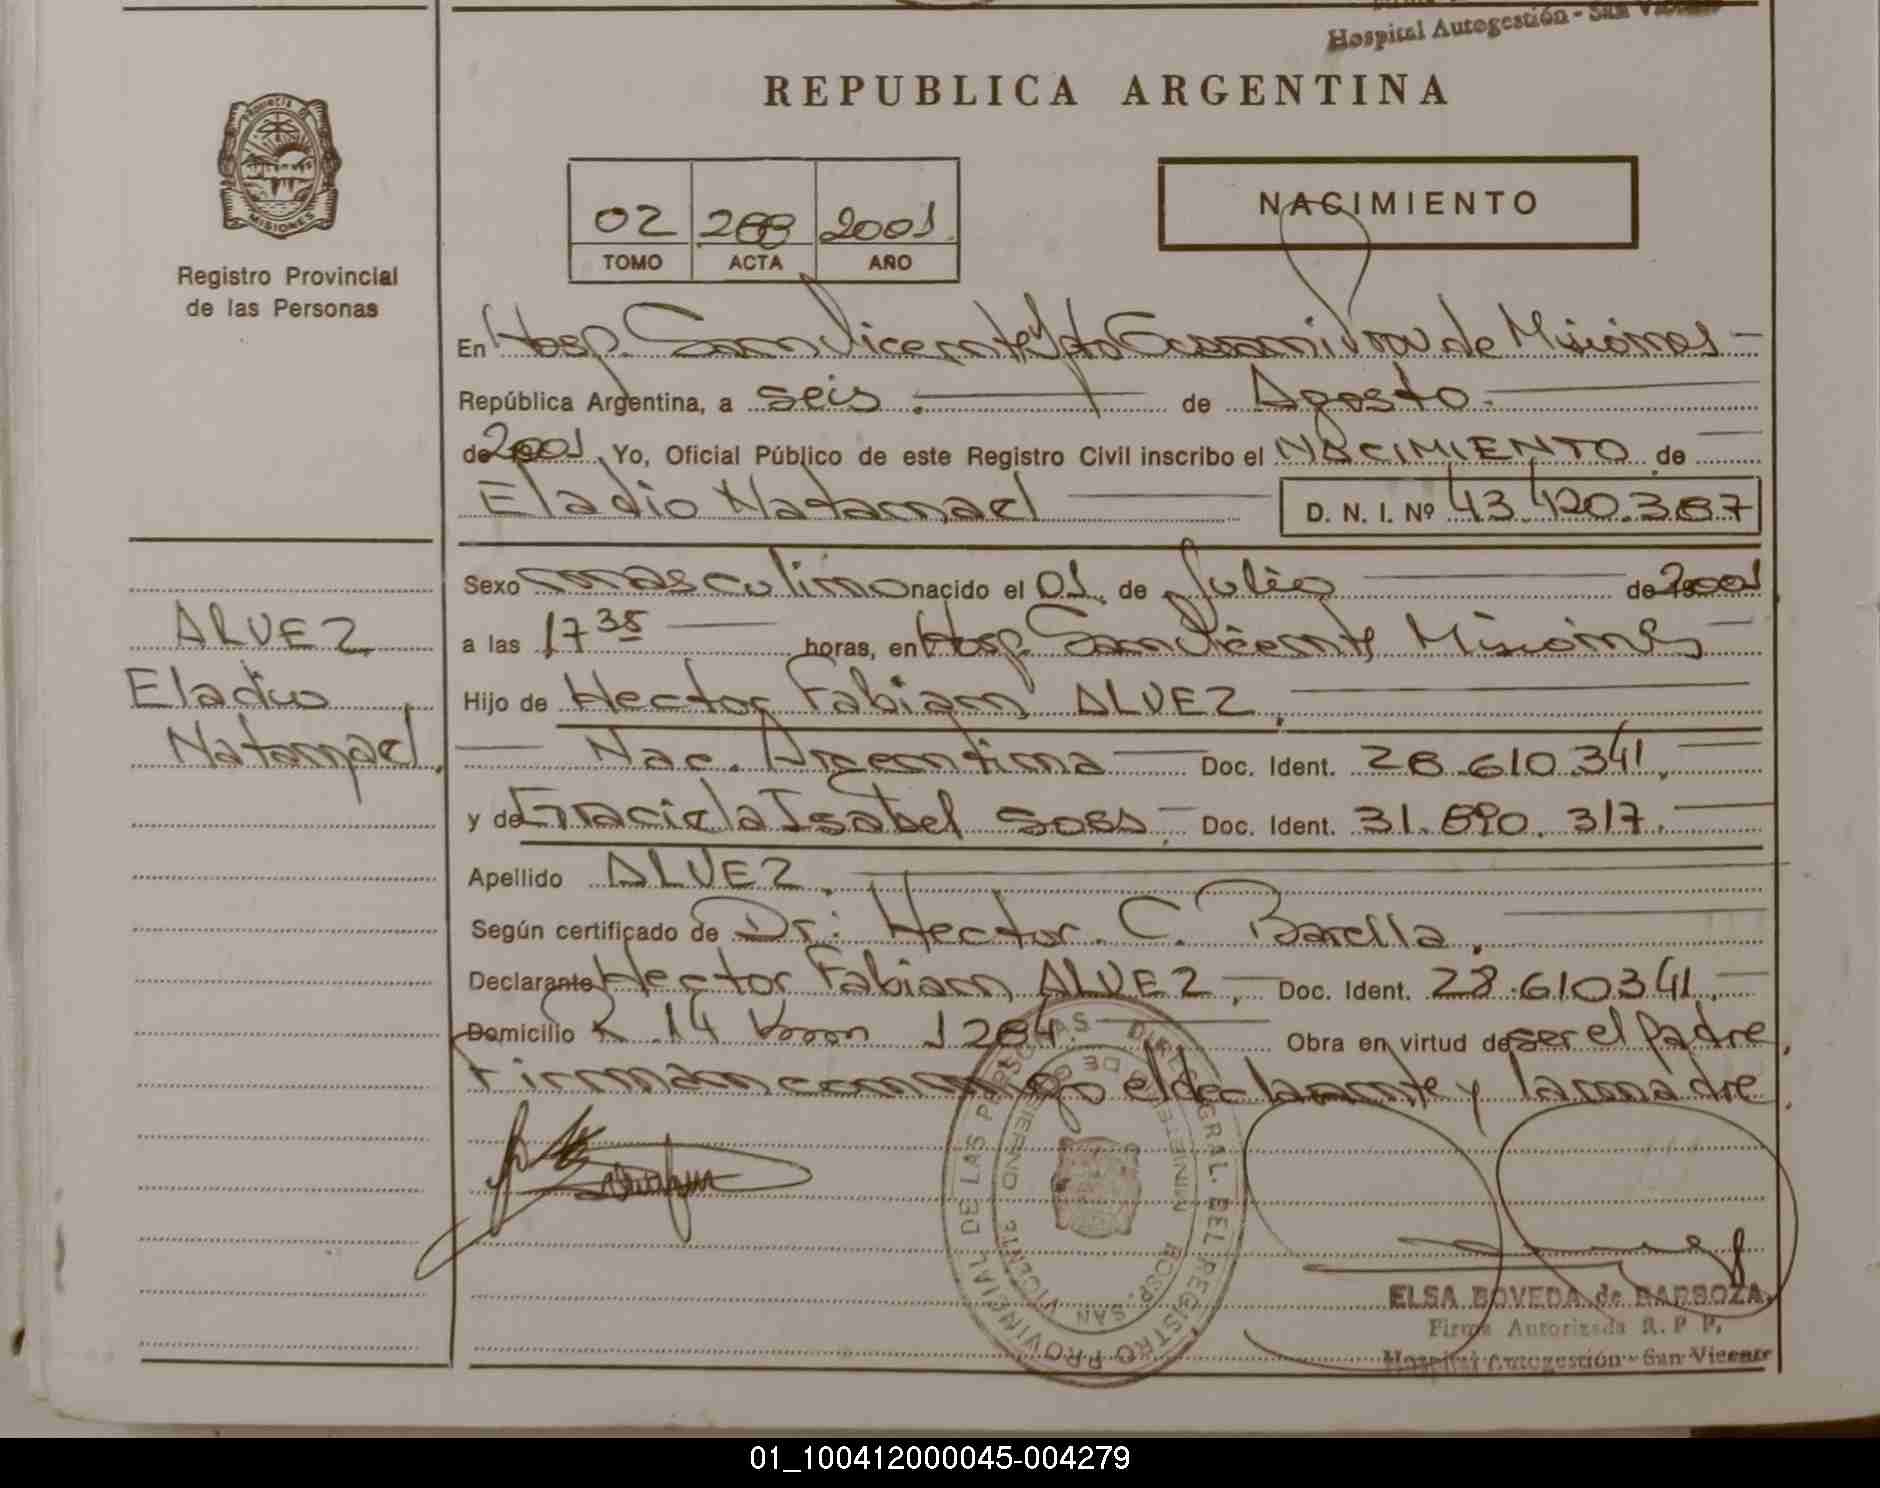 Hospital Autogestión - San Vicente
REPUBLICA ARGENTINA
PROVINCIA DE
MISIONES
NACIMIENTO
02 288 2001
TOMO ACTA AÑO
Registro Provincial
de las Personas
En Hosp. San Vicente Dpto Guaraní Prov de Misiones
República Argentina, a seis. de Agosto
de 2001 Yo, Oficial Público de este Registro Civil inscribo el NACIMIENTO de
Eladio Natanael D. N. I. Nº 43.420.387
Sexo masculino nacido el 01 de Julio de 2001
a las 17 35 horas, en Hosp. San Vicente Misiones
Hijo de Hector Fabian ALVEZ.
Nac. Argentina Doc. Ident. 28.610.341.
y de Graciela Isabel SOSA. Doc. Ident. 31.890.317.
Apellido ALVEZ.
Según certificado de Dr: Hector C. Barella.
Declarante Hector Fabian ALVEZ, Doc. Ident. 28.610341.
Domicilio R 14 Km 1284. Obra en virtud de ser el padre.
Firman conmigo el declarante y la madre.
ALVEZ
Eladio
Natanael.
REGISTRO PROVINCIAL DE LAS PERSONAS
HOSP. SAN VICENTE
ELSA BOVEDA de BARBOZA
Firma Autorizada R. P P.
Hospital Autogestión - San Vicente
01_100412000045-004279